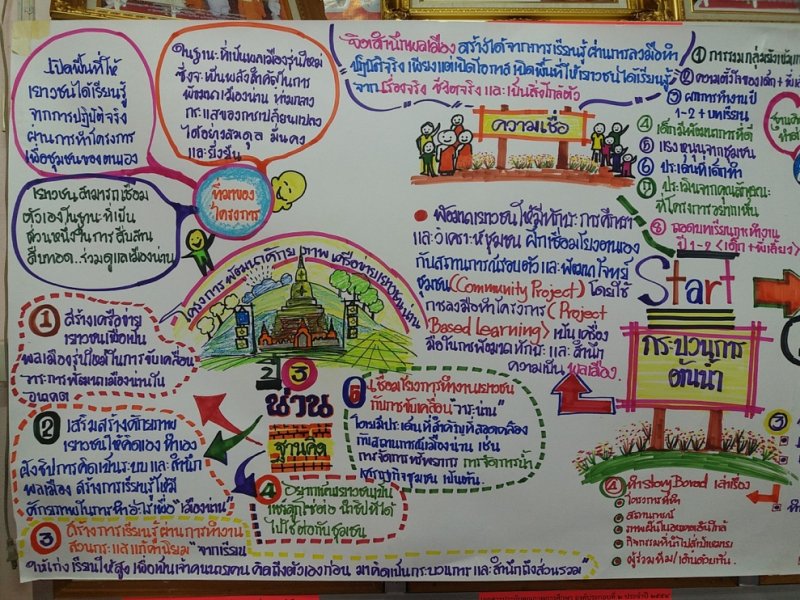 เปิดพื้นที่ให้
เยาวชนได้เรียนรู้
จากการปฏิบัติจริง
ผ่านการทำโครงการ
เพื่อชุมชนของตนเอง
ในฐานะที่เป็นพลเมืองรุ่นใหม่
ซึ่งจะเป็นพลังสำคัญในการ
พัฒนาเมืองน่าน ท่ามกลาง
กระแสของการเปลี่ยนแปลง
ได้อย่างสมดุล มั่นคง
และยั่งยืน
เยาวชนสามารถเชื่อม
ตัวเองในฐานะที่เป็น
ส่วนหนึ่งในการสืบสาน
สืบทอด ร่วมดูแลเมืองน่าน
ที่มาของ
โครงการ
จิตสำนึกพลเมือง สร้างได้จากการเรียนรู้ ผ่านการลงมือทำ
ปฏิบัติจริง เพียงแต่เปิดโอกาส เปิดพื้นที่ให้เยาวชนได้เรียนรู้
จากเรื่องจริง ชีวิตจริง และเป็นสิ่งใกล้ตัว
ความเชื่อ
① การรวมกลุ่ม
② ความตั้งใจของเด็ก
③ ผลการทำงานปี
1-2 + บทเรียน
④ เด็กมีพัฒนาการที่ดี
⑤ แรงหนุนจากชุมชน
⑥ ประเด็นที่เด็กทำ
⑦ ประเมินจากคุณลักษณะ
ที่โครงการอยากเห็น
⑧ ถอดบทเรียนการทำงาน
ปี 1-2 <เด็ก + พี่เลี้ยง>
• พัฒนาเยาวชนให้มีทักษะการศึกษา
และวิเคราะห์ชุมชน ฝึกเชื่อมโยงตนเอง
กับสถานการณ์รอบตัว และพัฒนาโจทย์
ชุมชน (Community Project) โดยใช้
การลงมือทำโครงการ (Project
Based Learning) เป็นเครื่อง
มือในการพัฒนาทักษะ และสำนึก
ความเป็นพลเมือง.
Start
กระบวนการ
ต้นน้ำ
โครงการ พัฒนาศักยภาพ เครือข่ายเยาวชนน่าน
ปี 3
น่าน
ฐานคิด
① สร้างเครือข่าย
เยาวชนเพื่อเป็น
พลเมืองรุ่นใหม่ในการขับเคลื่อน
วาระการพัฒนาเมืองน่านใน
อนาคต
② เสริมสร้างศักยภาพ
เยาวชนให้คิดเอง ทำเอง
สำนึก
พลเมือง สร้างการเรียนรู้ให้มี
ศักยภาพในการทำอะไรเพื่อ "เมืองน่าน"
③ สร้างการเรียนรู้ผ่านการทำงาน
สวนกระแสแก้ค่านิยม จากเรียน
ให้เก่ง เรียนให้สูง เพื่อเป็นเจ้าคนนายคน คิดถึงตัวเองก่อน มาคิดเป็นกระบวนการ และสำนึกถึงส่วนรวม"
④ อยากเห็นเยาวชนเป็น
ที่ได้
ไปใช้ต่อกับชุมชน
⑤ เชื่อมโยงการทำงานเยาวชน
กับการขับเคลื่อน "วาระน่าน"
โดยมีประเด็นที่สำคัญที่สอดคล้อง
กับสถานการณ์เมืองน่าน เช่น
การจัดการทรัพยากร การจัดการน้ำ
เศรษฐกิจชุมชน เป็นต้น.
④ ทำ Story Borad เล่าเรื่อง
• โครงการที่ทำ
• สถานการณ์
• ภาพฝันในอนาคตอันใกล้
• กิจกรรมที่นำไปสู่เป้าหมาย
• ผู้ร่วมทีม/เดินด้วยกัน.